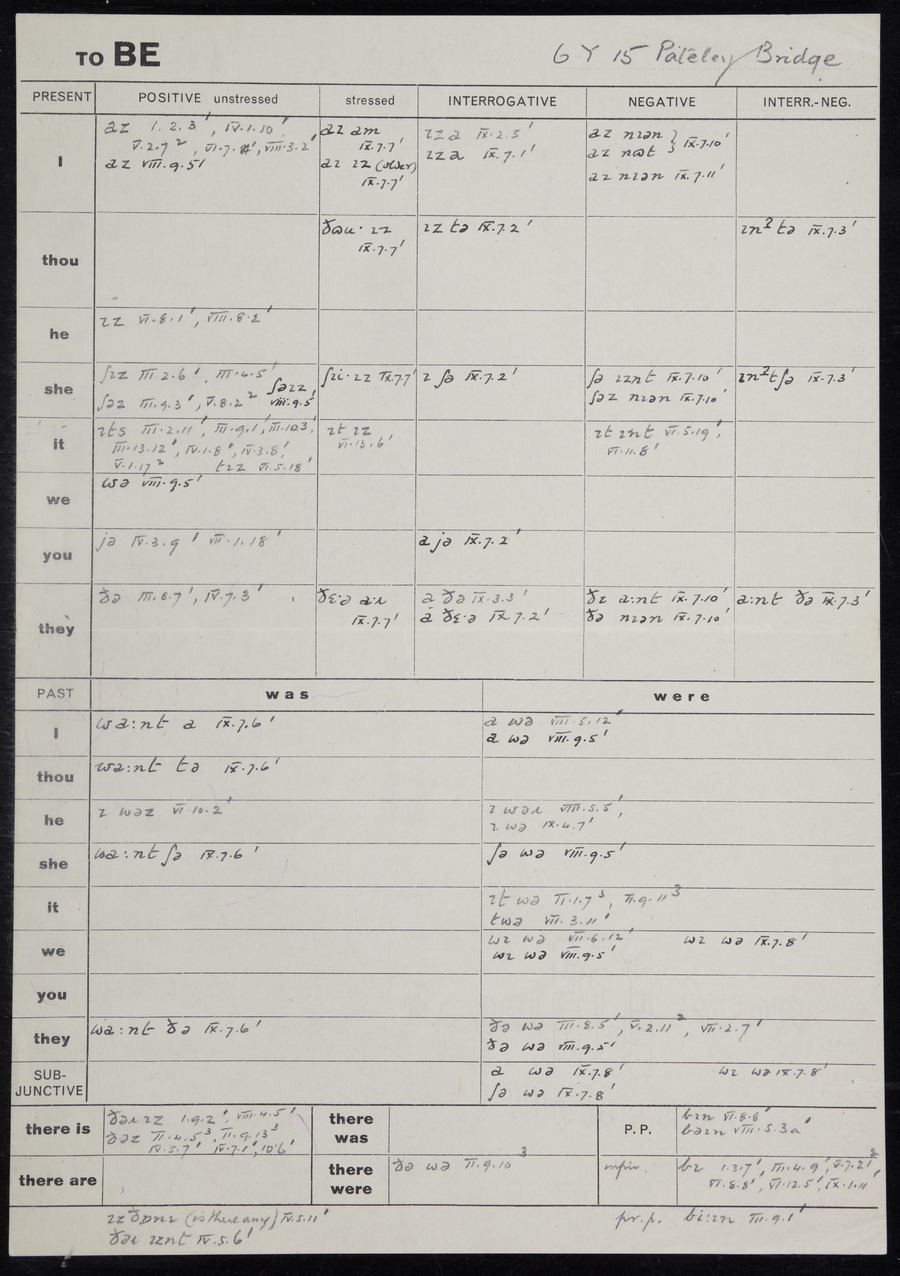 TO BE
6 Y 15 Pateley Bridge
PRESENT POSITIVE unstressed stressed INTERROGATIVE NEGATIVE INTERR.-NEG.
I
aɪ am
IX.7.7'
(older)
IX.7.7'
ɪz a IX.2.5'
ɪz a IX.7.1'
IX.7.10'
IX.7.11'
thou
IX.7.7'
ɪz tə IX.7.2'
IX.7.3'
he
ɪz VI.8.1', VIII.8.2'
she
ʃɪz III.2.6', III.4.5'
ʃəz III.9.3', V.8.2²
VIII.9.5'
IX.7.7'
ɪ ʃə IX.7.2'
ʃə ɪznt IX.7.10'
ʃəz nɪən IX.7.10'
IX.7.3'
it
ɪts III.2.11', III.9.1', III.10.3'
III.13.12', IV.1.8', IV.3.8'
V.1.17² tɪz VI.5.18'
ɪt ɪz
VI.13.6'
ɪt ɪnt VI.5.19',
VI.11.8'
we
wə VIII.9.5'
you
jə IV.3.9' VII.1.18'
a jə IX.7.2'
they
ðə III.8.7', IV.7.3'
IX.7.7'
a ðə IX.3.3'
a ðɛ·ə IX.7.2'
ðɪ a:nt IX.7.10'
ðə nɪən IX.7.10'
a:nt ðə IX.7.3'
PAST was were
I
wa:nt a IX.7.6'
a wə VIII.5.12'
a wə VIII.9.5'
thou
wa:nt tə IX.7.6'
he
ɪ wəz VI.10.2'
ɪ wəɹ VIII.5.5',
ɪ wə IX.4.7'
she
wa:nt ʃə IX.7.6'
ʃə wə VIII.9.5'
it
ɪt wə II.1.7³, II.9.11³
twə VII.3.11'
we
wɪ wə VII.6.12' wɪ wə IX.7.8'
wɪ wə VIII.9.5'
you
they
wa:nt ðə IX.7.6'
ðə wə III.8.5', V.2.11², VII.2.7'
ðə wə VIII.9.5'
SUB-
JUNCTIVE
a wə IX.7.8' wɪ wə IX.7.8'
ʃə wə IX.7.8'
there is
ðəɹ ɪz I.9.2', VIII.4.5'
ðəz II.4.5³, II.9.13³
IV.5.7' IV.7.1', 10.6'
there
was
P.P.
bɪn VI.8.8'
VIII.5.3a'
there are
there
were
ðə wə II.9.10³
infin.
bɪ I.3.7', III.4.9', V.7.21²
VI.8.8', VI.12.5', IX.1.11'
(is there any) IV.5.11'
ðəɹ ɪznt IV.5.6'
pr.p. bi:ɪn III.9.1'